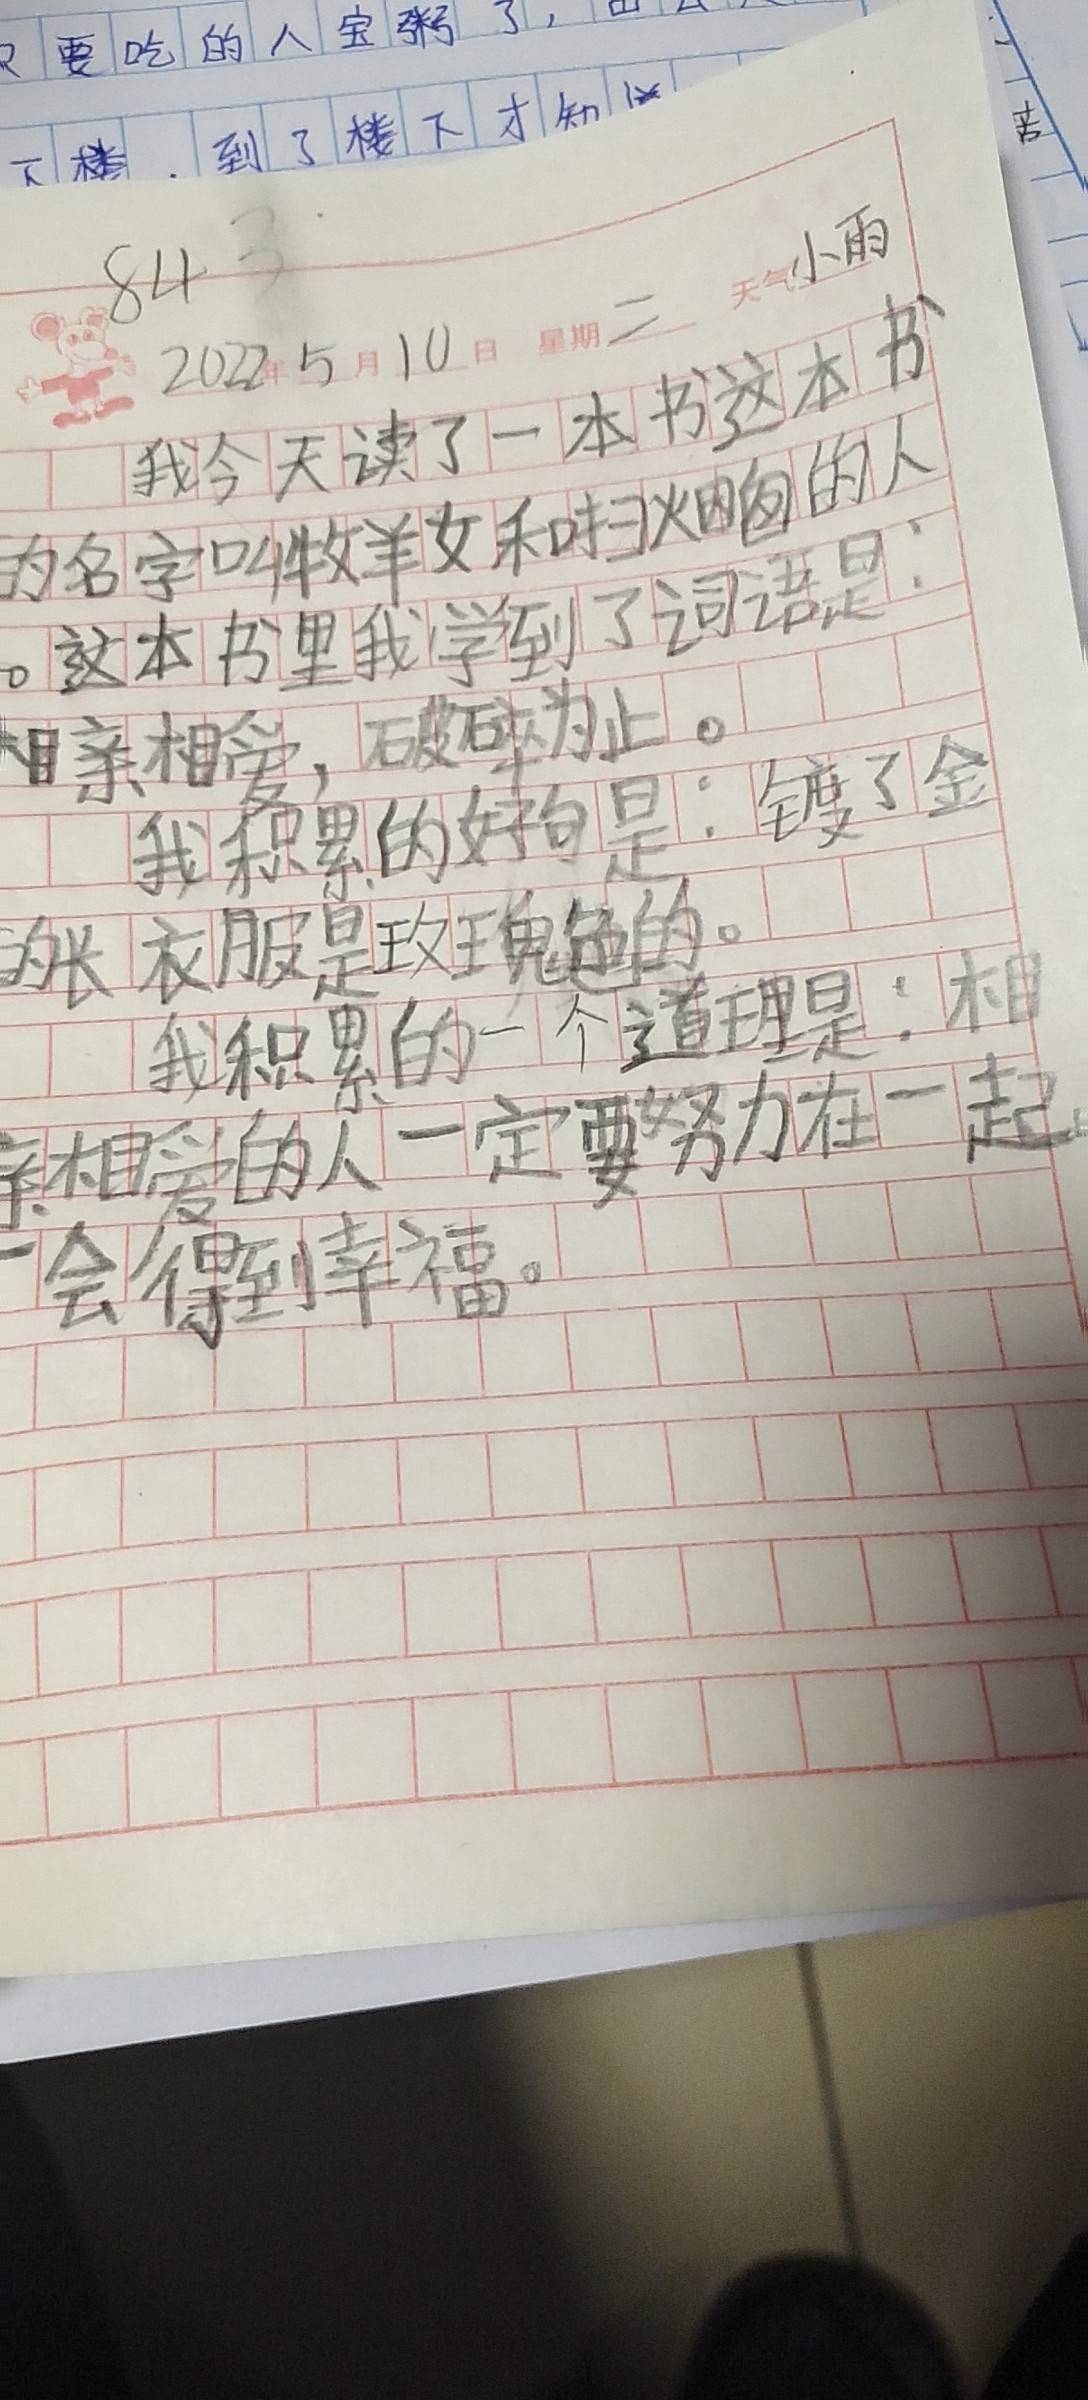 要吃的人宝粥了，
下楼．到了楼下才知
苦
843
2022年5月10日 星期二 天气小雨
我今天读了一本书这本书
的名字叫牧羊女和扫烟囱的人
。这本书里我学到了词语是：
相亲相爱，破碎为止。
我积累的好句是：镀了金
的长衣服是玫瑰色的。
我积累的一个道理是：相
亲相爱的人一定要努力在一起
会得到幸福。